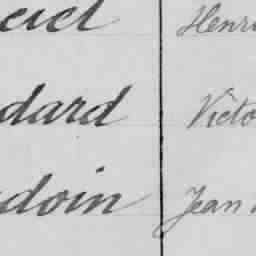 Henri
dard Victo
doin Jean